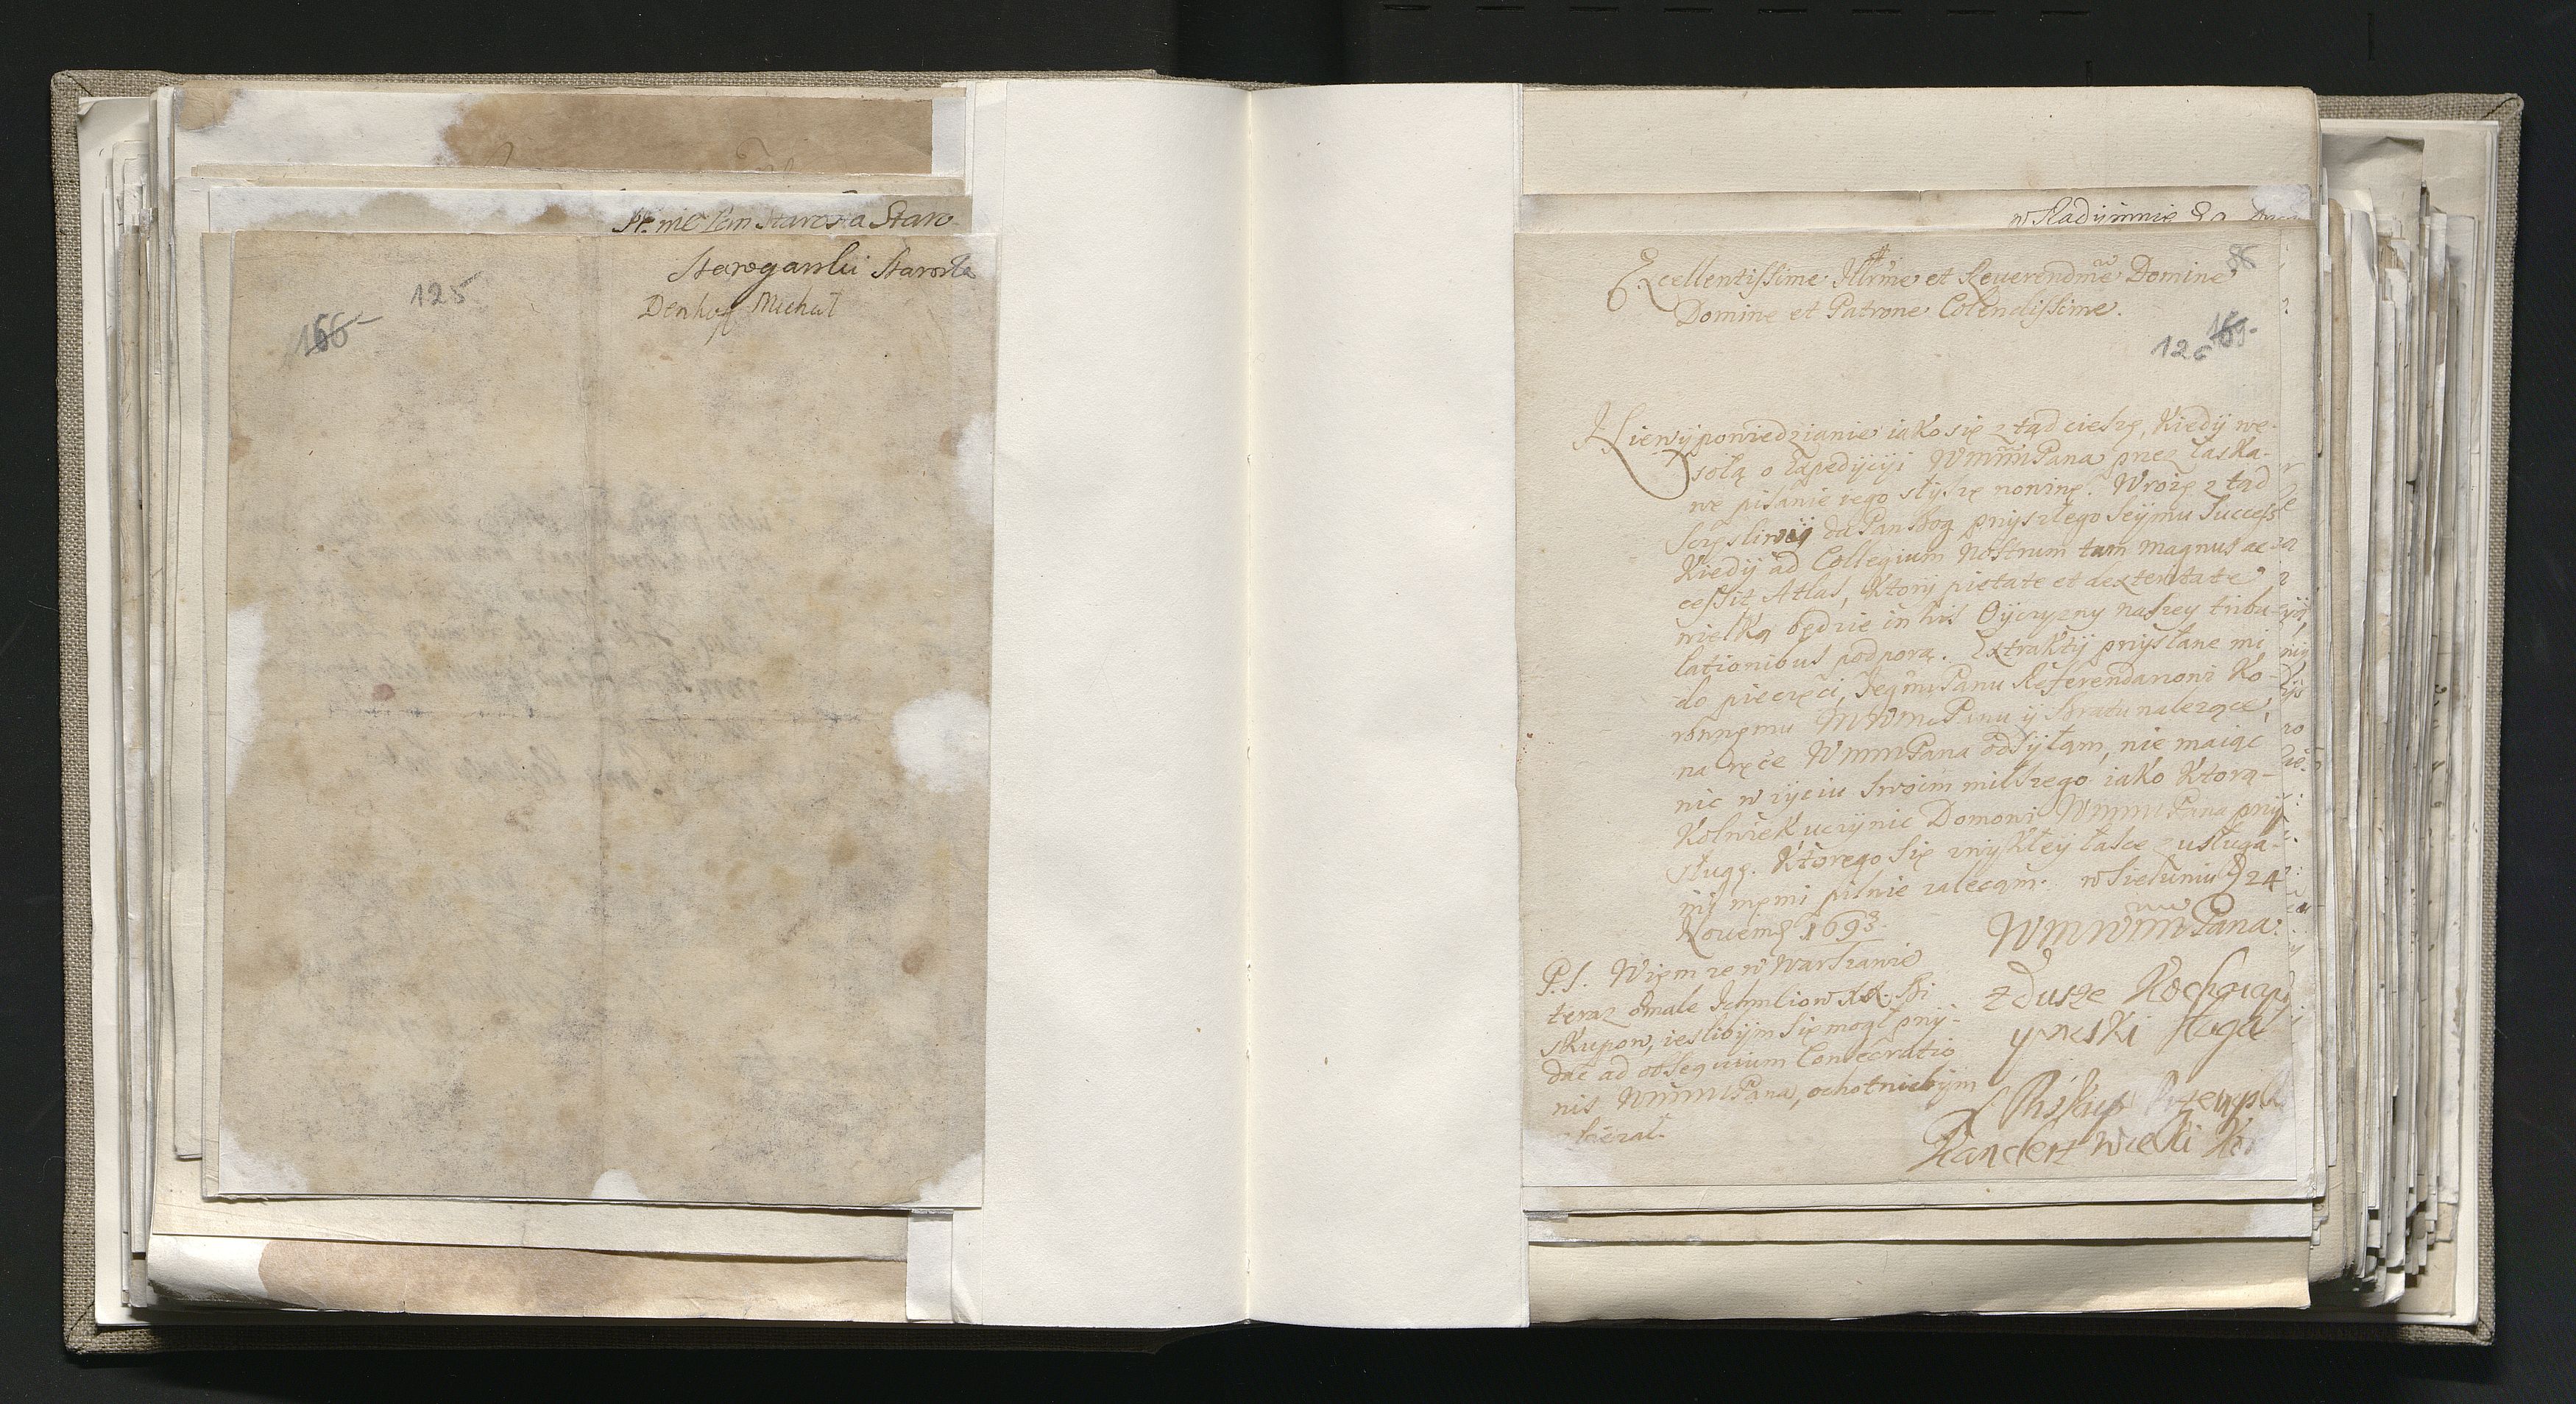 Starogarski Starosta
Denhoff Michał
125
166
w Radijmnie
86
Excellentissime Illrme et Reuerendme Domine
Domine et Patrone Colendissime.
169.
126
Niewijpowiedzianie iako się ztąd cieszę, Kiedij we-
sołą o Expedijcyi WmmPana przez łaska-
we pisanie iego słyszę nowinę. Wrożę ztąd
sczęsliwij da Pan Bog przijszłego Seijmu Success
Kiedij ad Collegium Nostrum tam magnus ac-
cessit Atlas, Ktorij pietate et dexteritate
wielką będzie in his Oijczyzny naszey tribu-
lationibus podporą. Extraktij przijsłane mi
do pieczęci, JegmPanu Referendarzowi Ko-
ronnemu MWmPanu ij Bratu należące,
na ręce WmmPana odsijłam, nie maiąc
nic w żijciu swoim milszego iako Ktorą-
Kolwiek uczijnic Domowi WmmPana przij
sługę. Ktorego się zwijkłeij łasce z usługa-
mi memi pilnie zalecam. w Sieluniu D 24
Nouemb 1693.
WmWmPana
z Dusze Kochaiąci
ynski sługa
Biskup
Kanclerz Wielki Ko
P.S. Wiem że w Warszawie
teraz omale Ichmściow XX. Bi
skupow, ieslibijm się mogł przij-
dać ad obsequium Consecratio
nis WmmPana, ochotniebijm